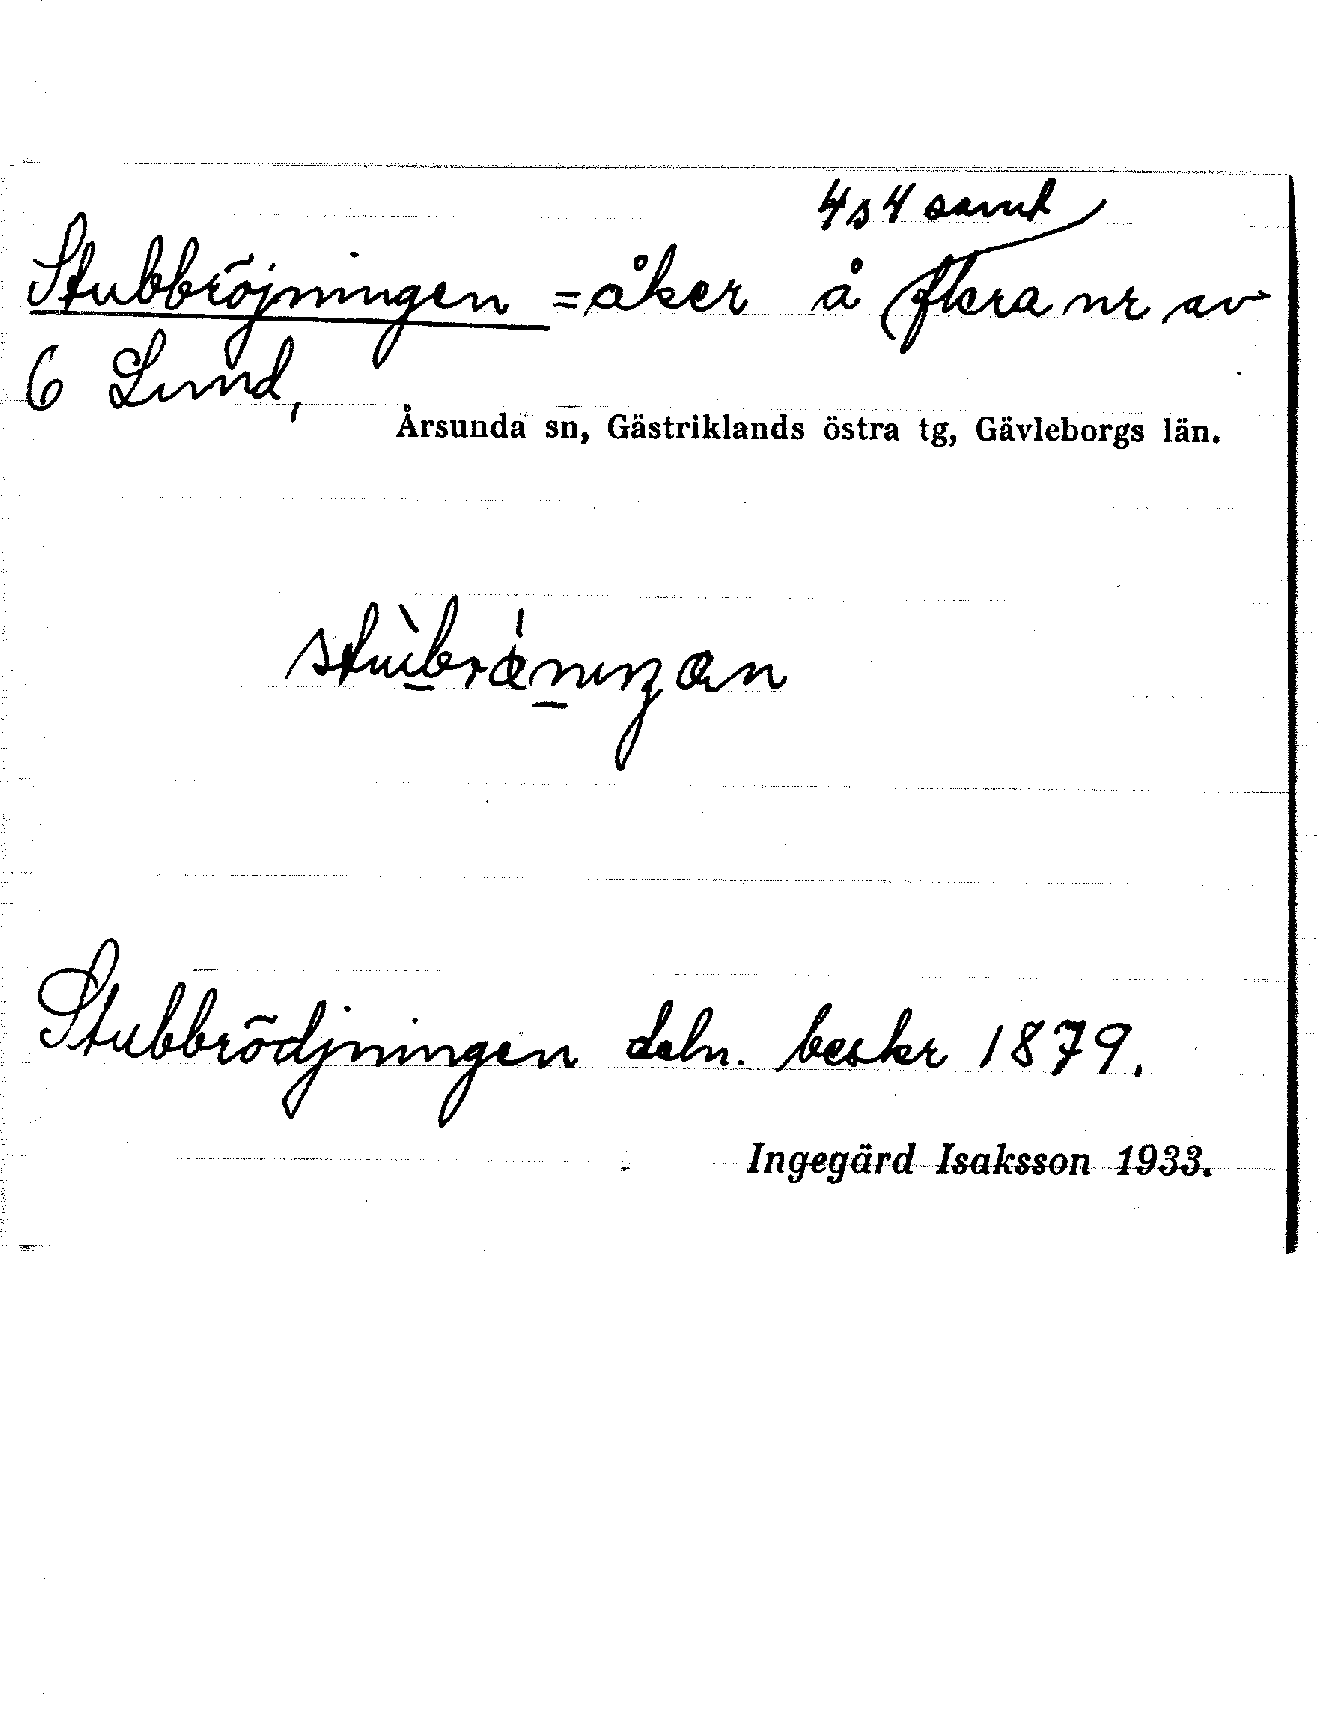 4s4 samt
Stubbröjningen = åker å flera nr av
6 Lund,
Årsunda sn, Gästriklands östra tg, Gävleborgs län.
Stubbrödjningen deln. beskr 1879.
Ingegärd Isaksson 1933.